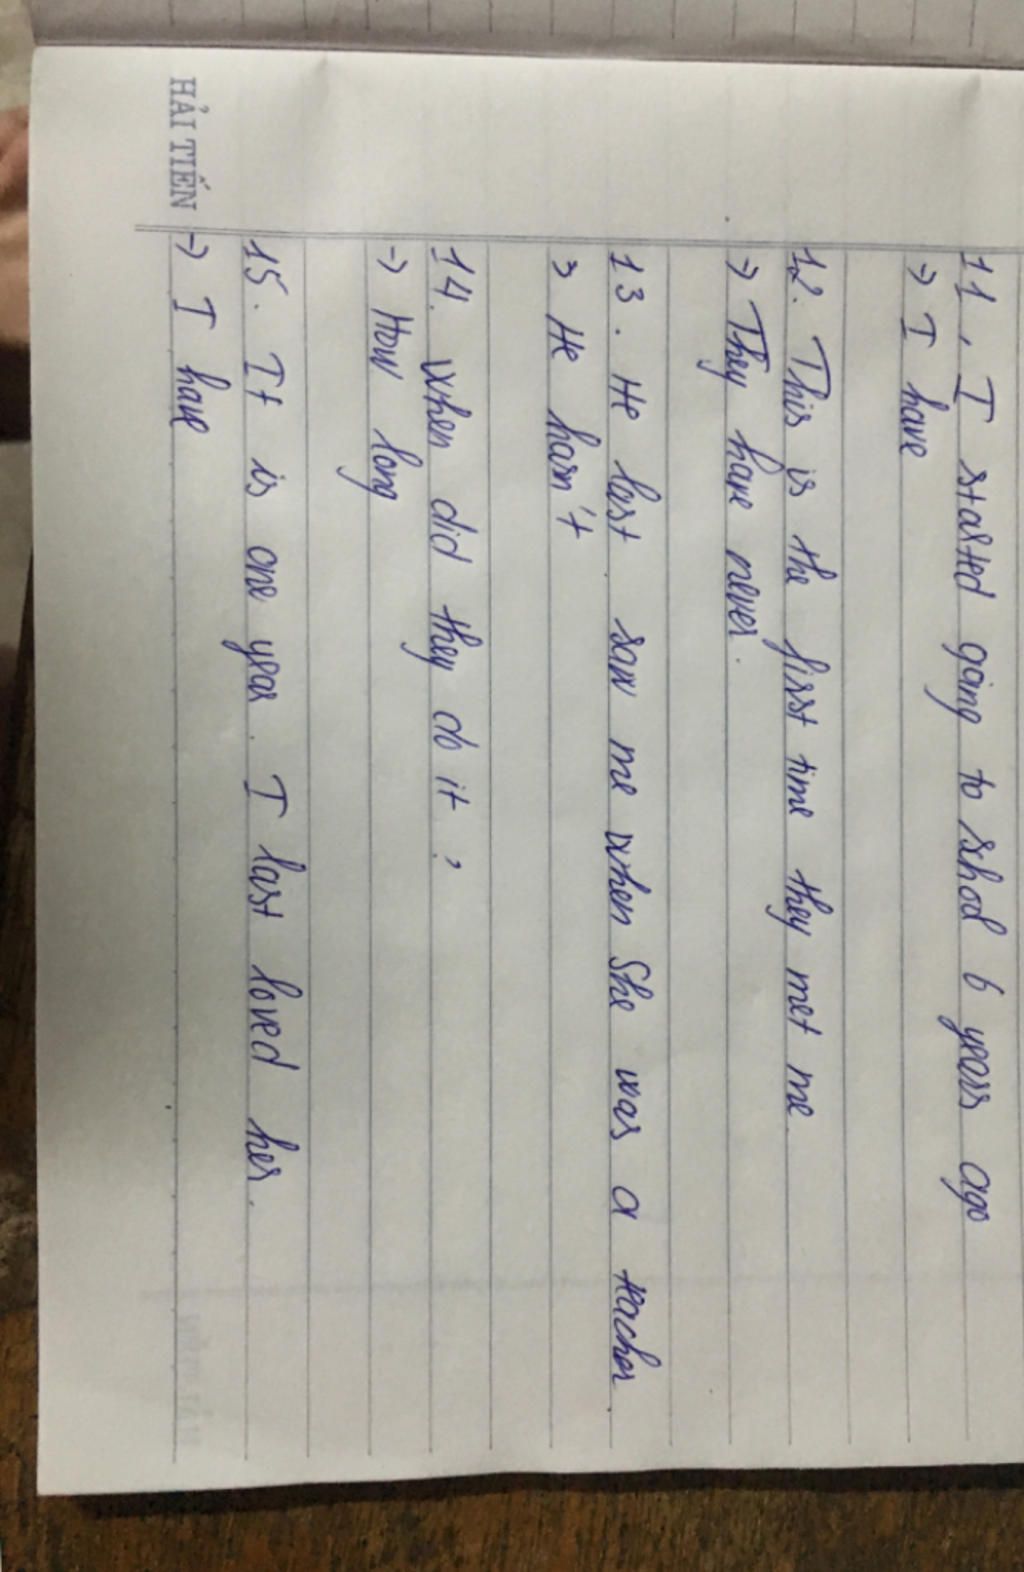 11. I started going to school 6 years ago
→ I have
12. This is the first time they met me.
→ They have never.
13. He last saw me when She was a teacher
→ He hasn't
14. When did they do it ?
→ How long
15. It is one year. I last loved her.
HẢI TIẾN → I have